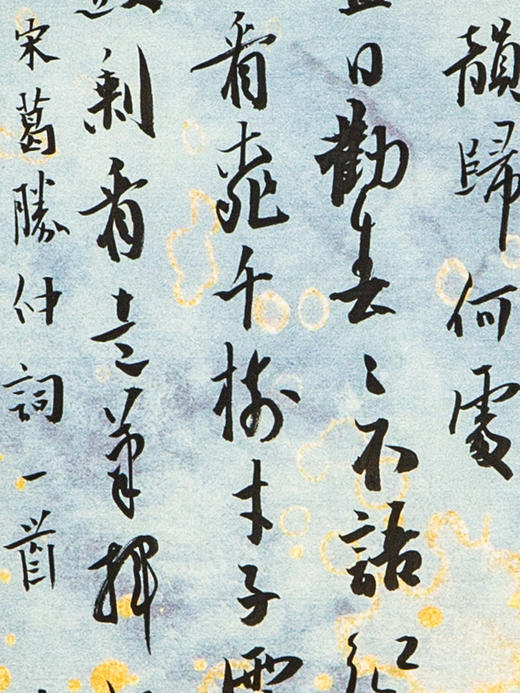 韻歸何處
日勸春春不語紅
看花千樹才子
剩看走筆揮
宋葛勝仲詞一首